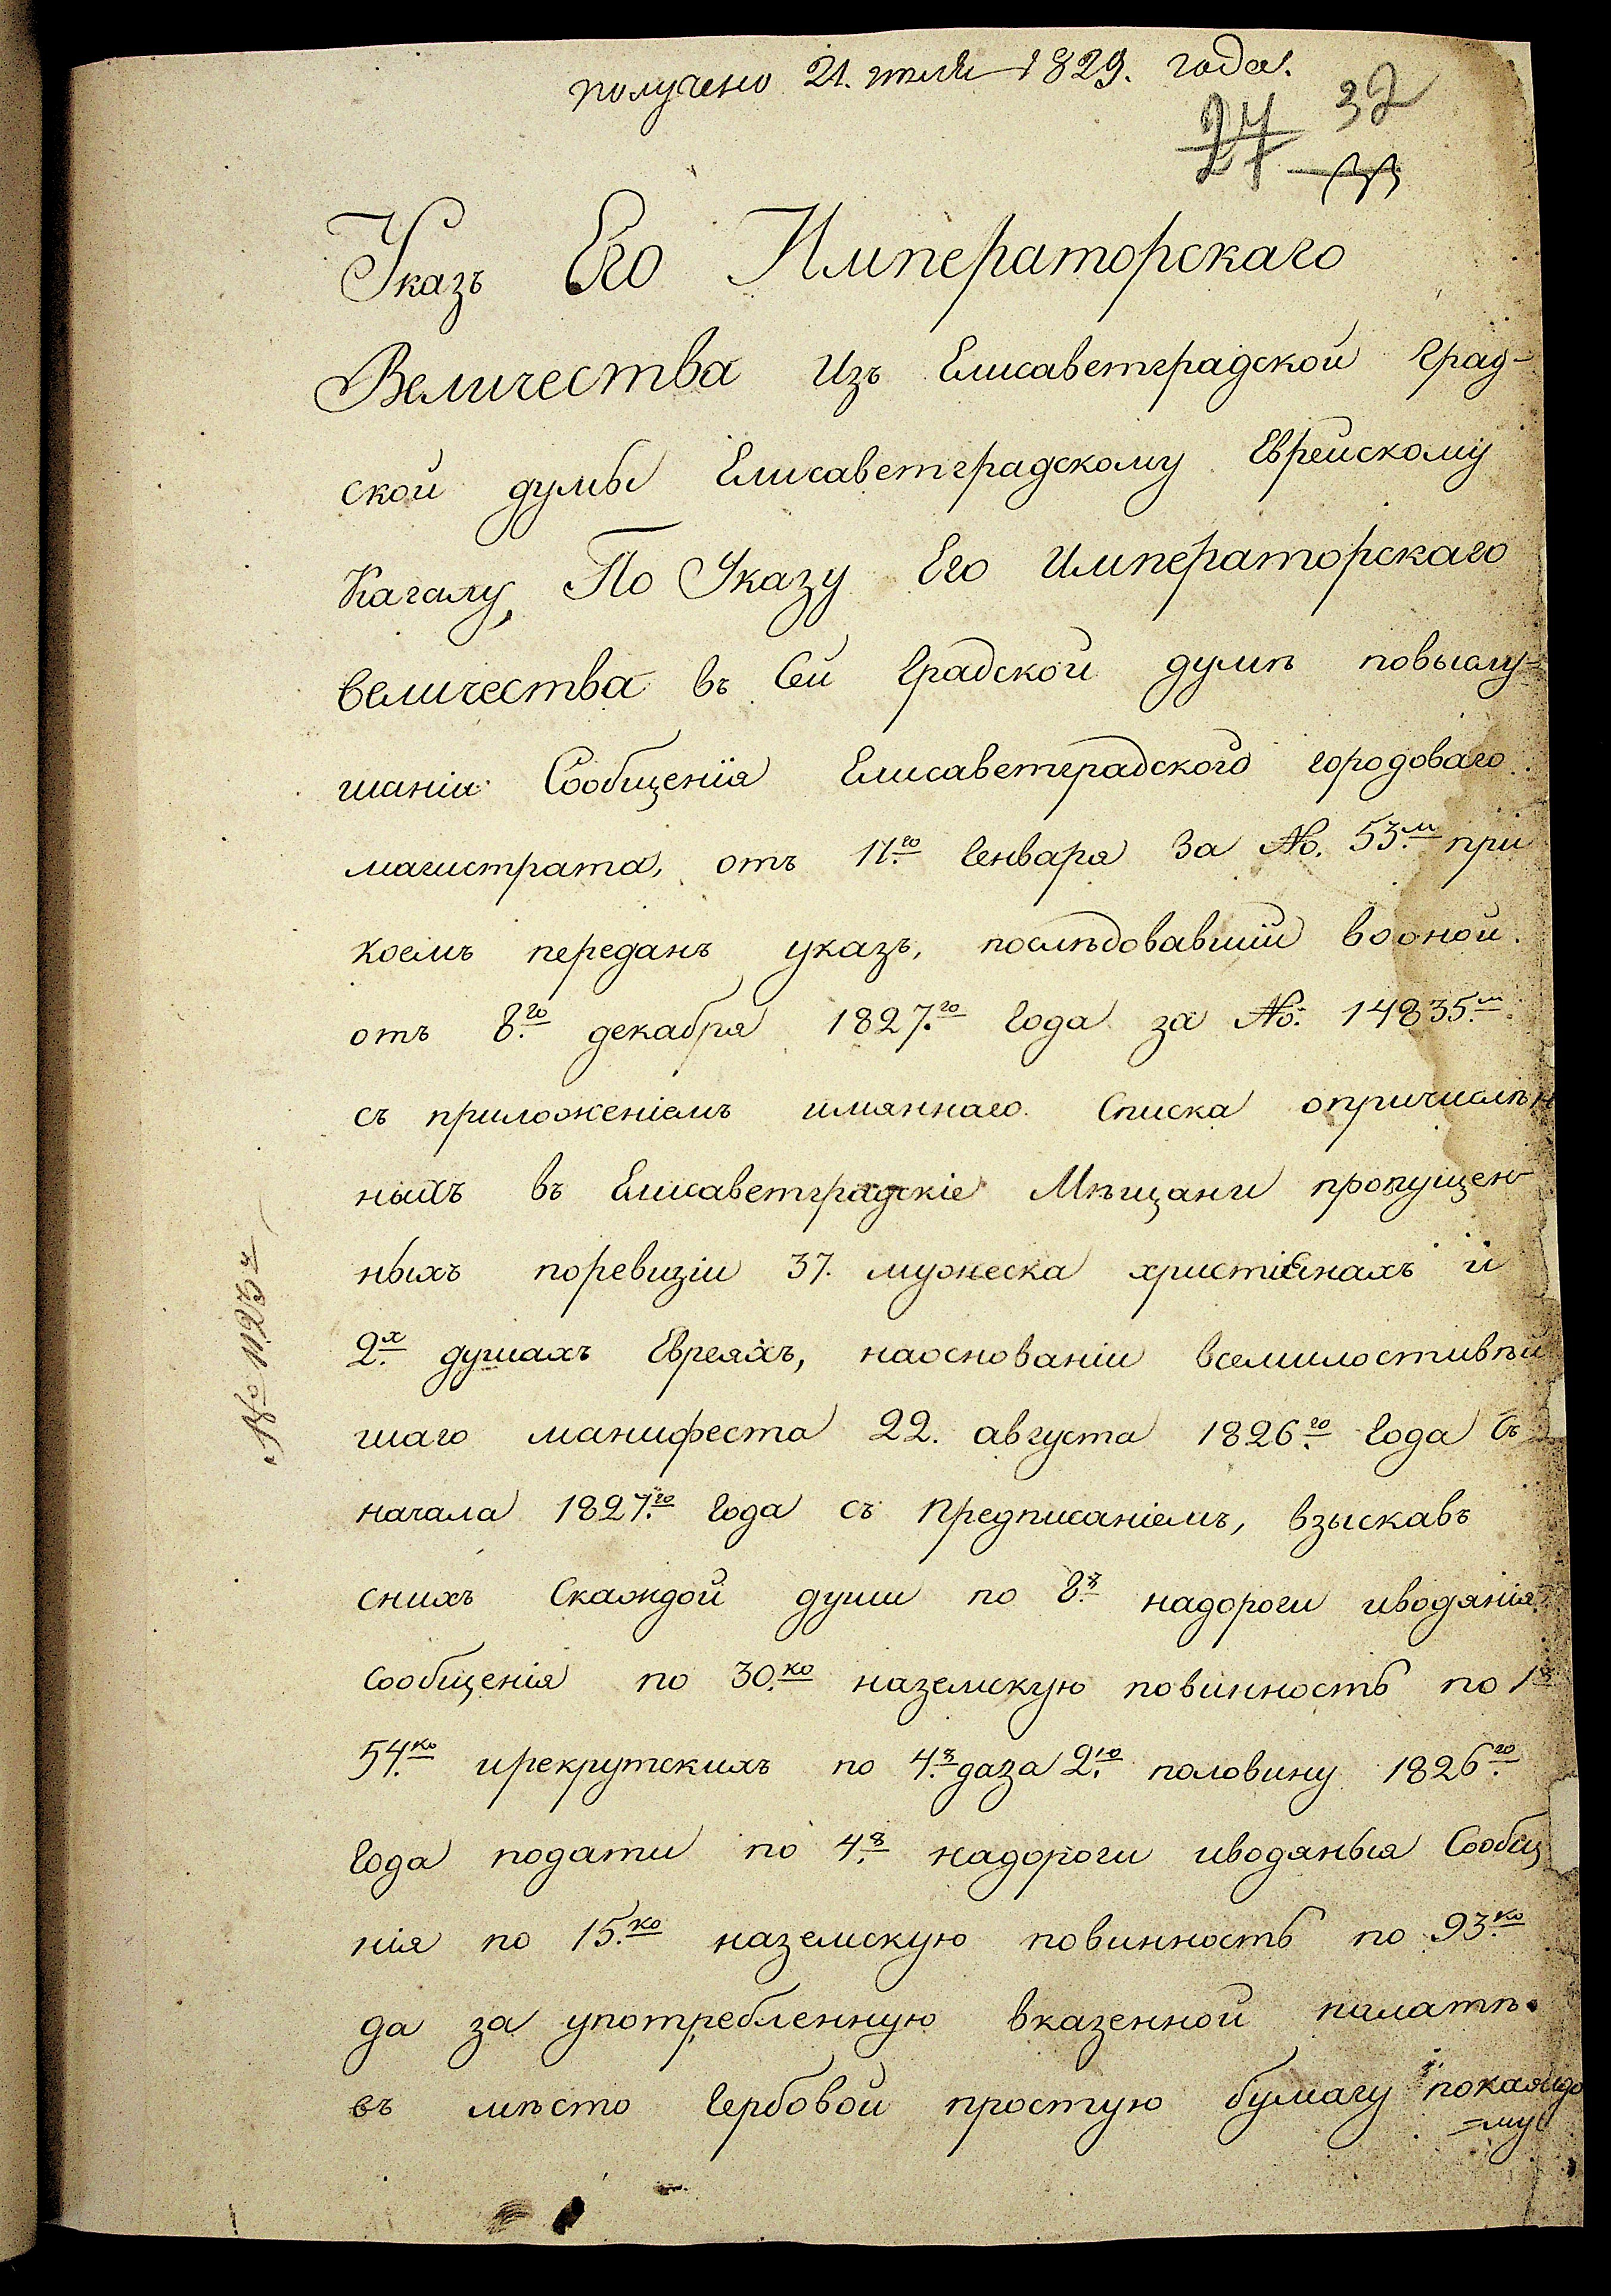 получено 21. июля 1829. года.
27 32
Указъ Его Императорскаго
Величества Изъ Елисаветградской Град-
ской думы Елисаветградскому Еврейскому
Кагалу, По Указу Его Императорскаго
величества въ Сей Градской думѣ повыслу=
шаніи Сообщенія Елисаветградского городоваго
магистрата, отъ 11.го Генваря За No. 53.м при
коемъ переданъ указъ, послѣдовавшій воной.
отъ 8.го декабря 1827.го Года за No. 14835.м
съ приложеніемъ имяннаго Списка опричислѣн
ныхъ въ Елисаветградскіе Мѣщани пропущен
ныхъ поревизіи 37. мужеска христіянахъ и
2.х душахъ Евреяхъ, наоснованіи всемилостивѣй
шаго манифеста 22. августа 1826.го Года съ
начала 1827.го Года съ Предписаніемъ, взыскавъ
снихъ Скаждой души по 8.р надороги иводянія
Сообщенія по 30.ко наземскую повинность по 1р
54.ко ирекрутскихъ по 4.р даза 2.ю половину 1826.го
Года подати по 4.р надороги иводяныя Сообщ
нія по 15.ко наземскую повинность по 93.ко
да за употребленную вказенной палатѣ
въ мѣсто Гербовой простую бумагу покаждо
=му